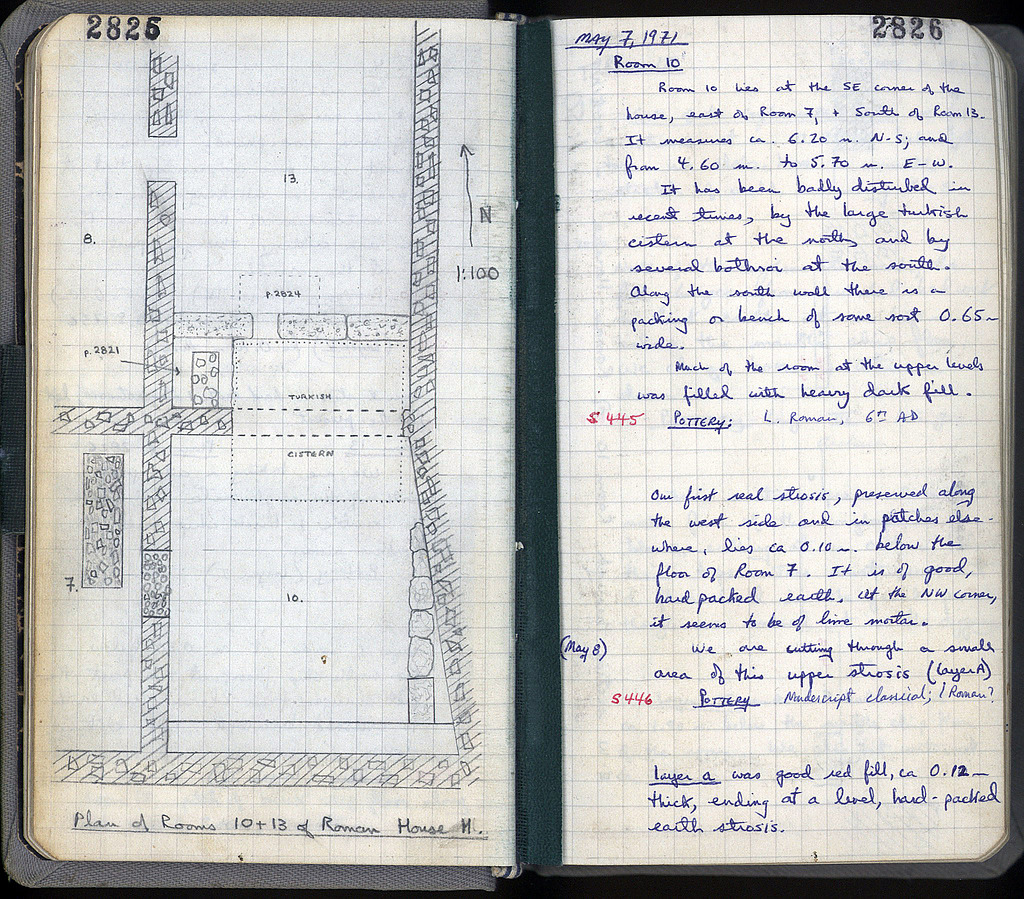 2825
13.
N
8.
1:100
p.2824
p.2821
TURKISH
CISTERN
7.
10.
Plan of Rooms 10+13 of Roman House H.
2826
MAY 7, 1971
Room 10
Room 10 lies at the SE corner of the
house, east of Room 7, + South of Room 13.
It measures ca. 6.20 m. N-S; and
from 4.60 m. to 5.70 m. E-W.
It has been badly disturbed in
recent times, by the large turkish
cistern at the north, and by
several bothroi at the south.
Along the south wall there is a
packing or bench of some sort 0.65 m
wide.
Much of the room at the upper levels
was filled with heavy dark fill.
S 445 POTTERY: L. Roman, 6th AD
Our first real strosis, preserved along
the west side and in patches else-
where, lies ca 0.10 m. below the
floor of Room 7. It is of good,
hard packed earth. At the NW corner,
it seems to be of lime mortar.
(May 8) We are cutting through a small
area of this upper strosis (layer A)
S 446 POTTERY Nondescript classical; 1 Roman?
Layer a was good red fill, ca 0.12 m
thick, ending at a level, hard-packed
earth strosis.